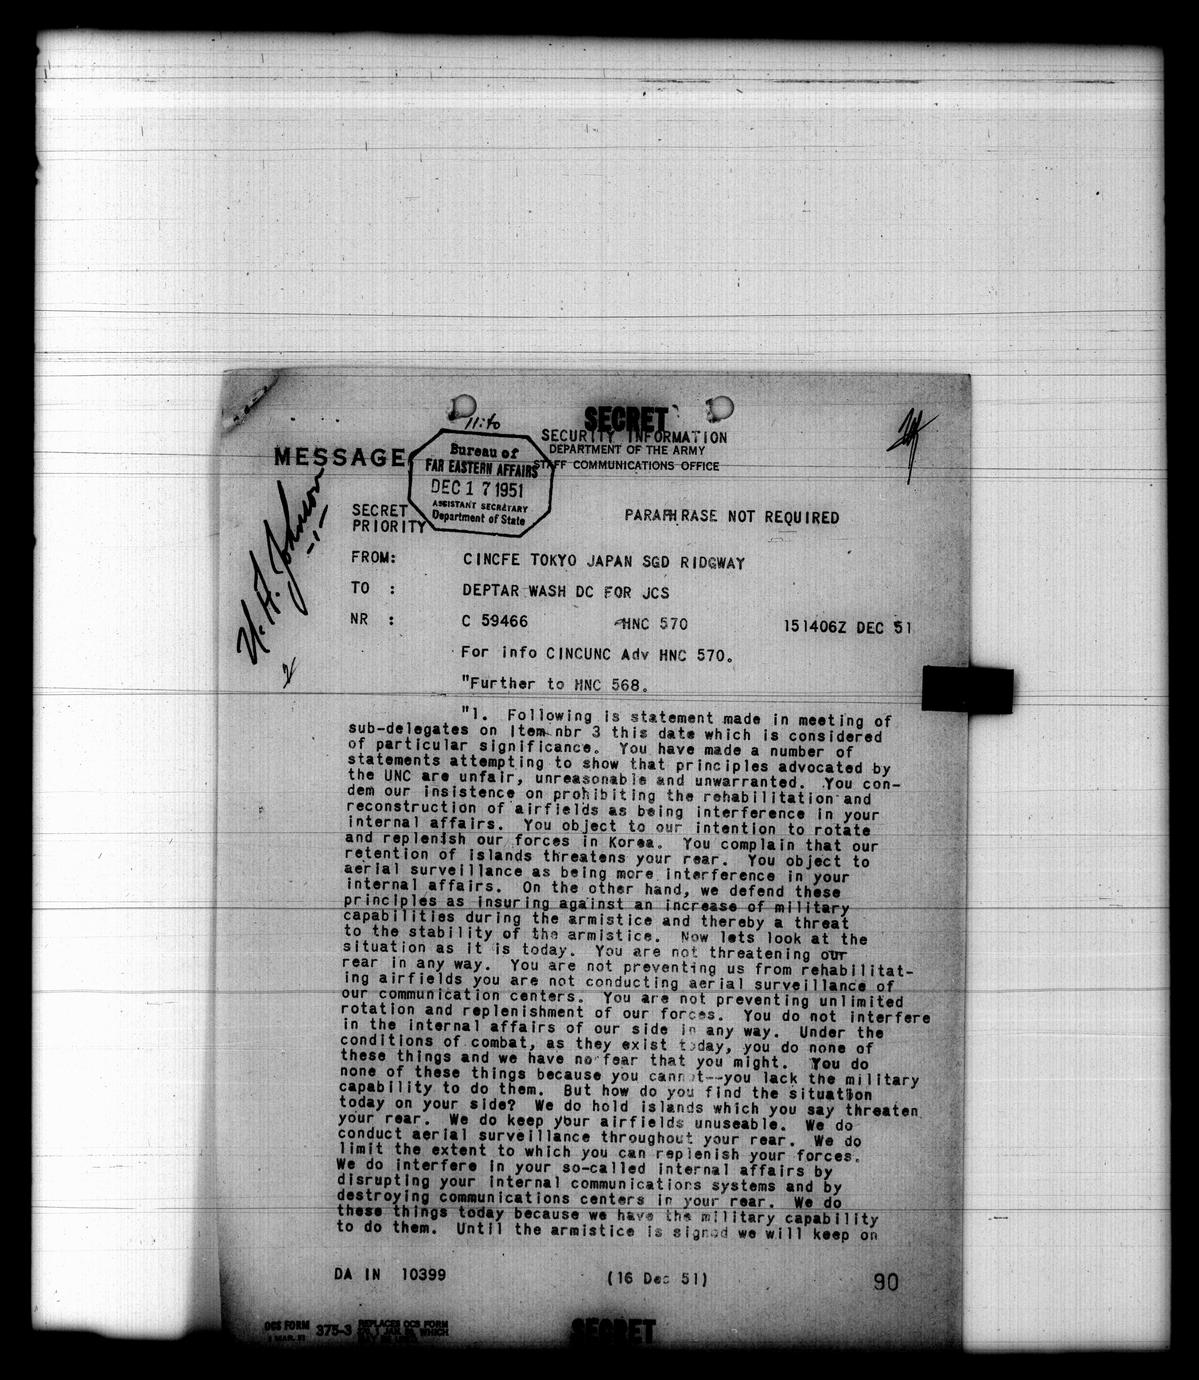 11:10
SECRET
SECURITY INFORMATION
DEPARTMENT OF THE ARMY
STAFF COMMUNICATIONS OFFICE
MESSAGE
Bureau of
FAR EASTERN AFFAIRS
DEC 17 1951
ASSISTANT SECRETARY
Department of State
U. A. Johnson
SECRET
PRIORITY
PARAPHRASE NOT REQUIRED
FROM: CINCFE TOKYO JAPAN SGD RIDGWAY
TO : DEPTAR WASH DC FOR JCS
NR : C 59466 HNC 570 151406Z DEC 51
For info CINCUNC Adv HNC 570.
"Further to HNC 568.
"1. Following is statement made in meeting of
sub-delegates on Item nbr 3 this date which is considered
of particular significance. You have made a number of
statements attempting to show that principles advocated by
the UNC are unfair, unreasonable and unwarranted. You con-
dem our insistence on prohibiting the rehabilitation and
reconstruction of airfields as being interference in your
internal affairs. You object to our intention to rotate
and replenish our forces in Korea. You complain that our
retention of islands threatens your rear. You object to
aerial surveillance as being more interference in your
internal affairs. On the other hand, we defend these
principles as insuring against an increase of military
capabilities during the armistice and thereby a threat
to the stability of the armistice. Now lets look at the
situation as it is today. You are not threatening our
rear in any way. You are not preventing us from rehabilitat-
ing airfields you are not conducting aerial surveillance of
our communication centers. You are not preventing unlimited
rotation and replenishment of our forces. You do not interfere
in the internal affairs of our side in any way. Under the
conditions of combat, as they exist today, you do none of
these things and we have no fear that you might. You do
none of these things because you cannot--you lack the military
capability to do them. But how do you find the situation
today on your side? We do hold islands which you say threaten
your rear. We do keep your airfields unuseable. We do
conduct aerial surveillance throughout your rear. We do
limit the extent to which you can replenish your forces.
We do interfere in your so-called internal affairs by
disrupting your internal communications systems and by
destroying communications centers in your rear. We do
these things today because we have the military capability
to do them. Until the armistice is signed we will keep on
DA IN 10399 (16 Dec 51) 90
OCS FORM 375-3 REPLACES OCS FORM
SECRET